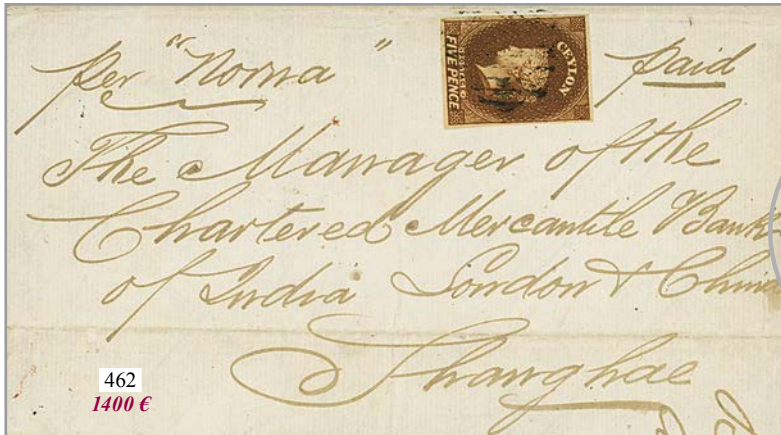 per "Norna" paid
CEYLON
POSTAGE
FIVE PENCE
The Manager of the
Chartered Mercantile Bank
of India London & China
Shanghae
462
1400 €